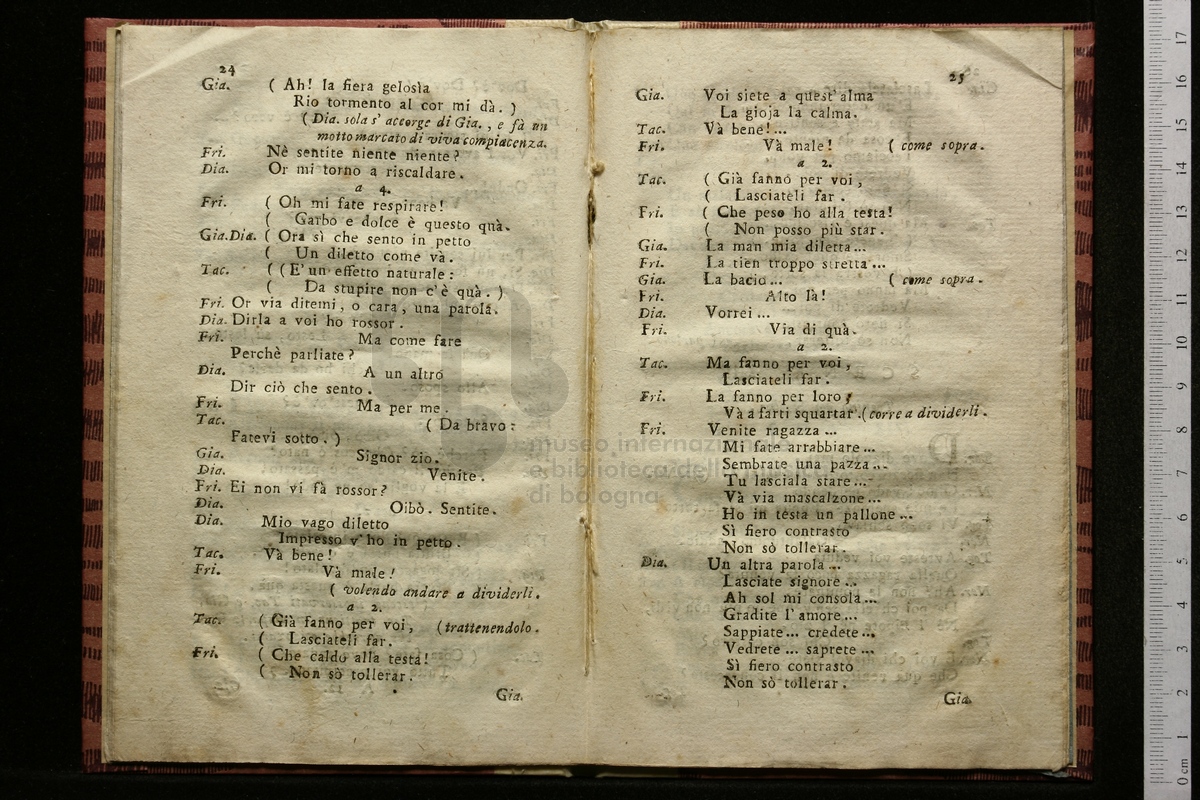 24
Gia. ( Ah! la fiera gelosìa
Rio tormento al cor mi dà. )
( Dia. sola s' accorge di Gia. , e fà un
motto marcato di viva compiacenza.
Fri. Nè sentite niente niente?
Dia. Or mi torno a riscaldare.
a 4.
Fri. ( Oh mi fate respirare!
( Garbo e dolce è questo quà.
Gia.Dia. ( Ora sì che sento in petto
( Un diletto come và.
Tac. ( ( E' un effetto naturale:
( Da stupire non c'è quà. )
Fri. Or via ditemi, o cara, una parola.
Dia. Dirla a voi ho rossor.
Fri. Ma come fare
Perchè parliate?
Dia. A un altro
Dir ciò che sento.
Fri. Ma per me.
Tac. ( Da bravo:
Fatevi sotto. )
Gia. Signor zio.
Dia. Venite.
Fri. Ei non vi fà rossor?
Dia. Oibò. Sentite.
Dia. Mio vago diletto
Impresso v' ho in petto.
Tac. Và bene!
Fri. Và male!
( volendo andare a dividerli.
a 2.
Tac. ( Già fanno per voi, (trattenendolo.
( Lasciateli far.
Fri. ( Che caldo alla testa!
( Non sò tollerar.
Gia.
25
Gia. Voi siete a quest' alma
La gioja la calma.
Tac. Và bene!...
Fri. Và male! ( come sopra.
a 2.
Tac. ( Già fanno per voi,
( Lasciateli far.
Fri. ( Che peso ho alla testa!
( Non posso più star.
Gia. La man mia diletta...
Fri. La tien troppo stretta...
Gia. La bacio... ( come sopra.
Fri. Alto là!
Dia. Vorrei...
Fri. Via di quà.
a 2.
Tac. Ma fanno per voi,
Lasciateli far.
Fri. La fanno per loro;
Và a farti squartar.(corre a dividerli.
Fri. Venite ragazza...
Mi fate arrabbiare...
Sembrate una pazza...
Tu lasciala stare...
Và via mascalzone...
Ho in testa un pallone...
Sì fiero contrasto
Non sò tollerar.
Dia. Un altra parola...
Lasciate signore...
Ah sol mi consola...
Gradite l' amore...
Sappiate... credete...
Vedrete... saprete...
Sì fiero contrasto
Non sò tollerar.
Gia.
museo internazionale
e biblioteca della musica
di bologna
0 cm 1 2 3 4 5 6 7 8 9 10 11 12 13 14 15 16 17